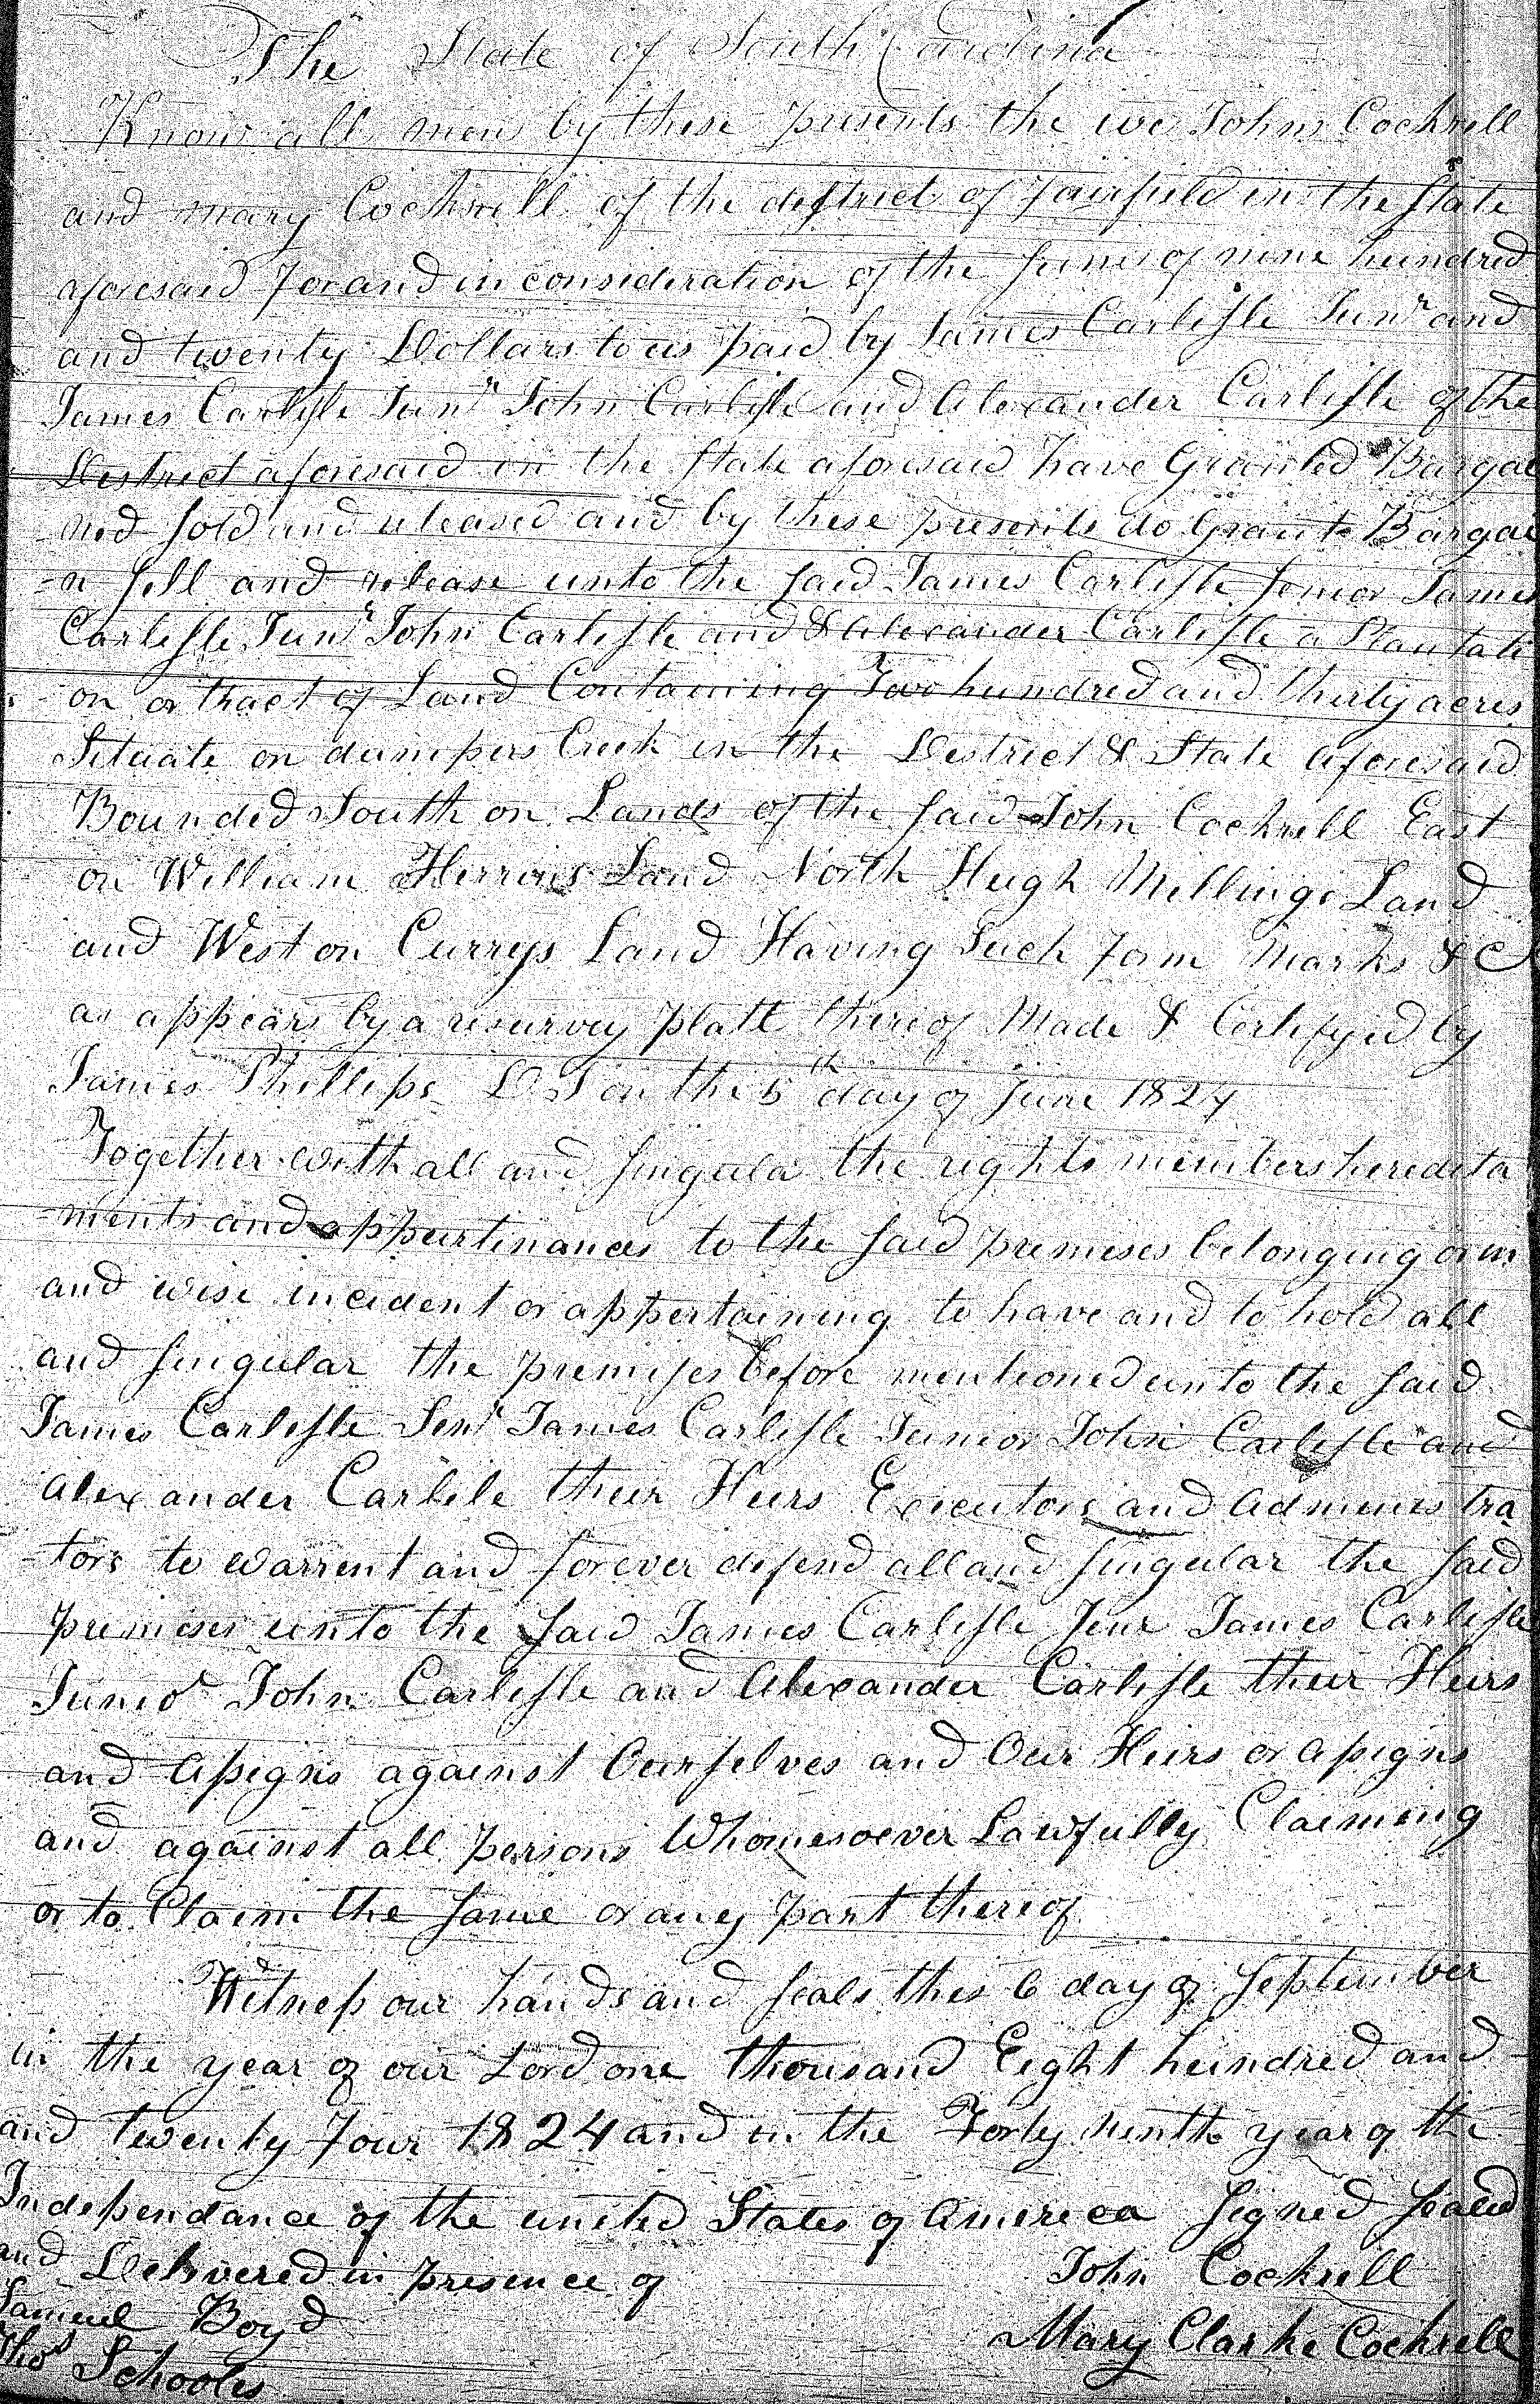 The State of South Carolina
Know all men by these presents the we John Cockrell
and mary Cockrell of the district of Fairfield in the State
aforesaid For and in consideration of the sume of nine hundred
and twenty Dollars to us paid by James Carlisle Junr and
James Carlisle Junr John Carlisle and Alexander Carlisle of the
District aforesaid in the State aforesaid have Granted Bargai
ned sold and released and by these presents do Grant Bargai
-n sell and release unto the said James Carlisle senior James
Carlisle Junr John Carlisle and & Alexander Carlisle a Plantati
on or tract of Land Containing Two hundred and thirty acres
Situate on dumpers Creek in the District & State aforesaid
Bounded South on Lands of the said John Cockrell East
on William Herrons Land North Hugh Millings Land
and West on Currys Land Having Such form Marks &C
as appears by a resurvey platt thereof Made & Certifyed by
James Phillips D S on the 5th day of June 1824
Together with all and singular the rights members heredita
-ments and appurtinances to the said premises belonging or in
and wise incident or appertaining to have and to hold all
and singular the premises before mentioned unto the said
James Carlisle Senr James Carlisle Junior John Carlisle and
Alexander Carlile their Heirs Executors and Adminis tra
-tors to warrent and forever defend all and singular the said
premises unto the said James Carlisle Senr James Carlisle
Junior John Carlisle and Alexander Carlisle their Heirs
and Assigns against Ourselves and Our Heirs or assigns
and against all persons Whomesoever Lawfully Claiming
or to Claim the same or any part thereof
Witness our hands and seals this 6 day of September
in the year of our Lord one thousand Eight hundred and
and twenty Four 1824 and in the Forty ninth year of the
Independance of the united States of America signed sealed
and Delivered in presence of John Cockrell
Samuel Boyd Mary Clarke Cockrell
Thos Schooles